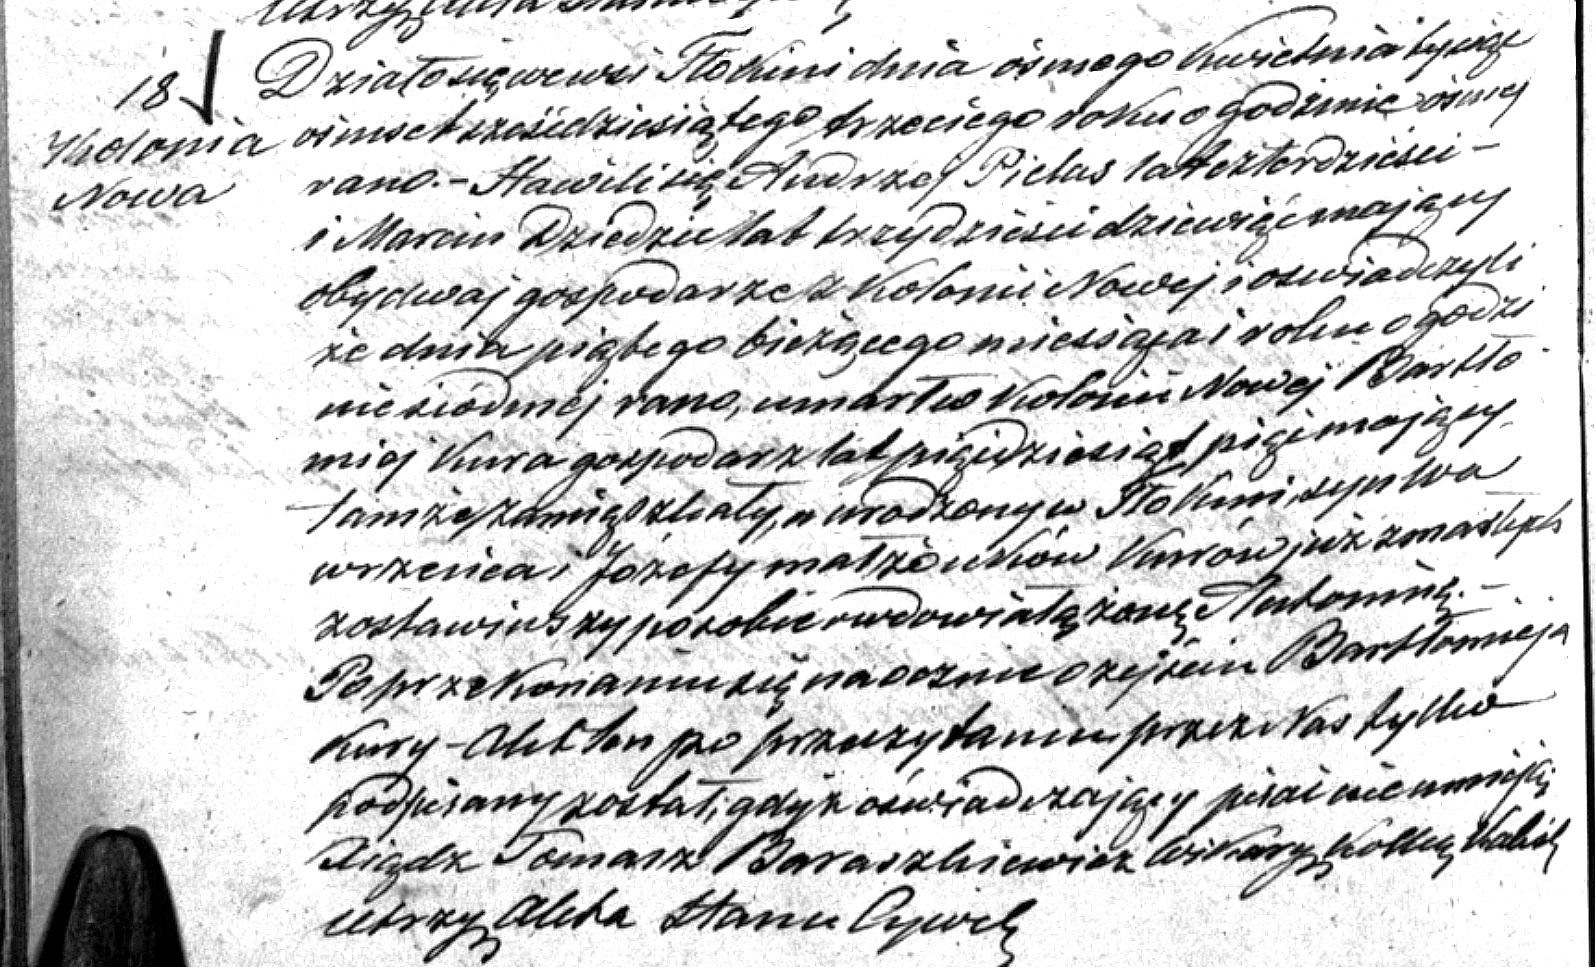 18
Kolonia
Nowa
Działo się we wsi Tłokini dnia ósmego Kwietnia tysiąc
ośmset sześćdziesiątego trzeciego roku o godzinie ósmej
rano. – Stawili się Andrzej Pielas lat czterdzieści –
i Marcin Dziedzic lat trzydzieści dziewięć mający
obydwaj gospodarze z Kolonii Nowej i oświadczyli
że dnia piątego bieżącego miesiąca i roku o godzi
nie siódmej rano, umarł w Kolonii Nowej Bartło
miej Kura gospodarz lat pięćdziesiąt pięć mający
tamże zamieszkały, a urodzony w Tłokini, syn Wa
wrzeńca i Józefy małżonków Kurów już zmarłych
zostawiwszy po sobie owdowiałą żonę Antoninę. –
Po przekonaniu się naocznie o zejściu Bartłomieja
Kury – Akt ten po przeczytaniu przez Nas tylko
podpisany został, gdyż oświadczający pisać nie umieją
Xiądz Tomasz Baraszkiewicz Wikary Kolleg Kalisk
utrzy Akta Stanu Cywil